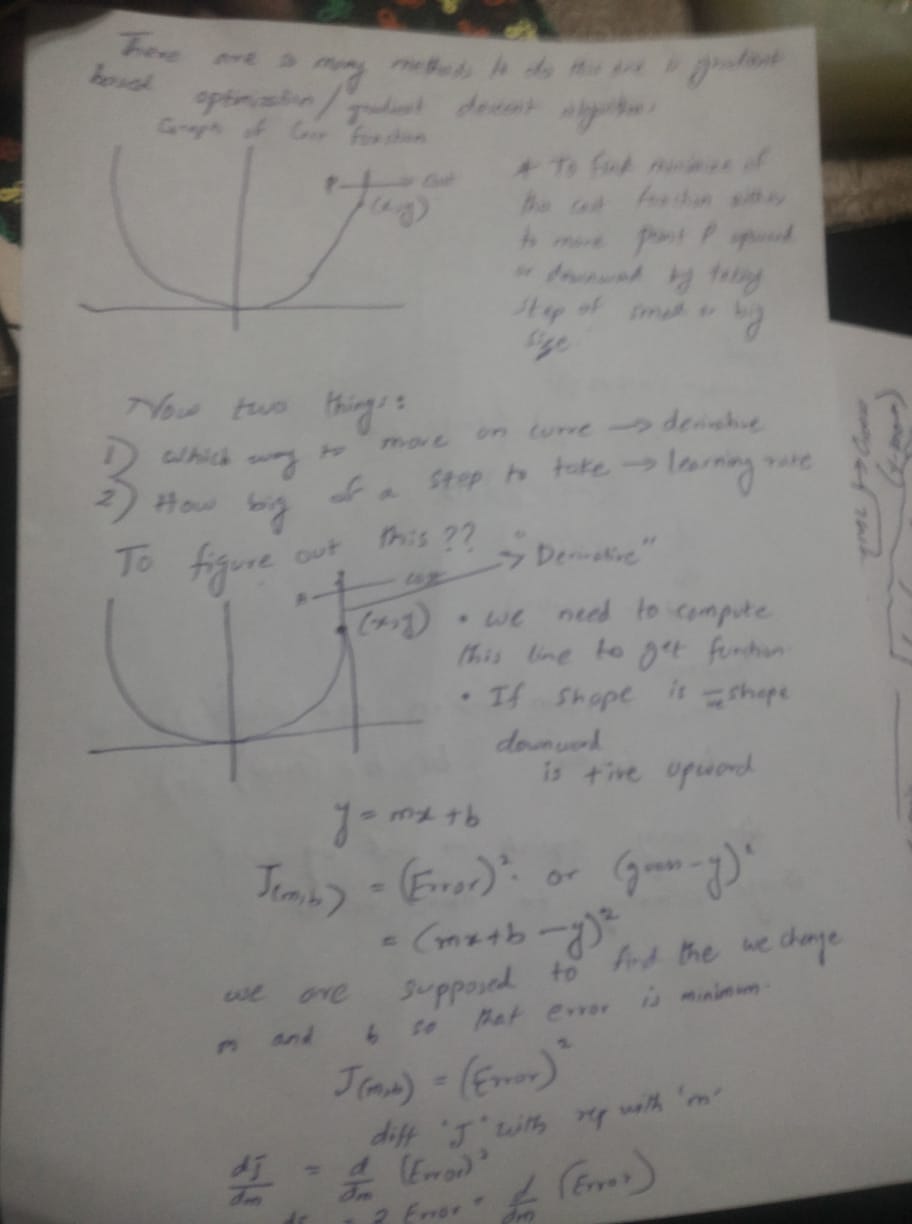 There are so many methods to do this one is gradient
based optimization / gradient descent algorithm.
Graph of Cost function
P cost
(x,y)
* To find minimize of
this cost function either
to move point P upward
or downward by taking
step of small or big
size
Now two things:
1) which way to move on curve → derivative
2) How big of a step to take → learning rate
To figure out this ??
"Derivative"
cost
(x,y)
• we need to compute
this line to get function
• If shape is -ve shape
downward
is +ive upward
y = mx + b
J(m,b) = (Error)². or (guess-y)²
= (mx+b-y)²
we are supposed to find the we change
m and b so that error is minimum.
J(m,b) = (Error)²
diff 'J' with rep with 'm'
dJ/dm = d/dm (Error)²
= 2 Error * d/dm (Error)